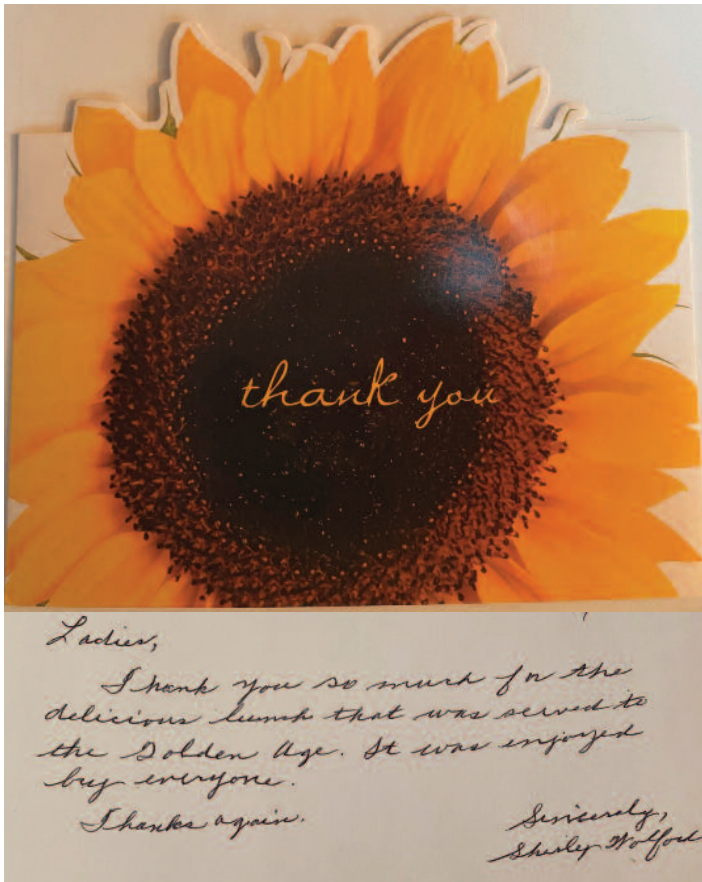 thank you
Ladies,
Thank you so much for the
delicious lunch that was served to
the Golden Age. It was enjoyed
by everyone.
Thanks again.
Sincerely,
Shirley Wolford